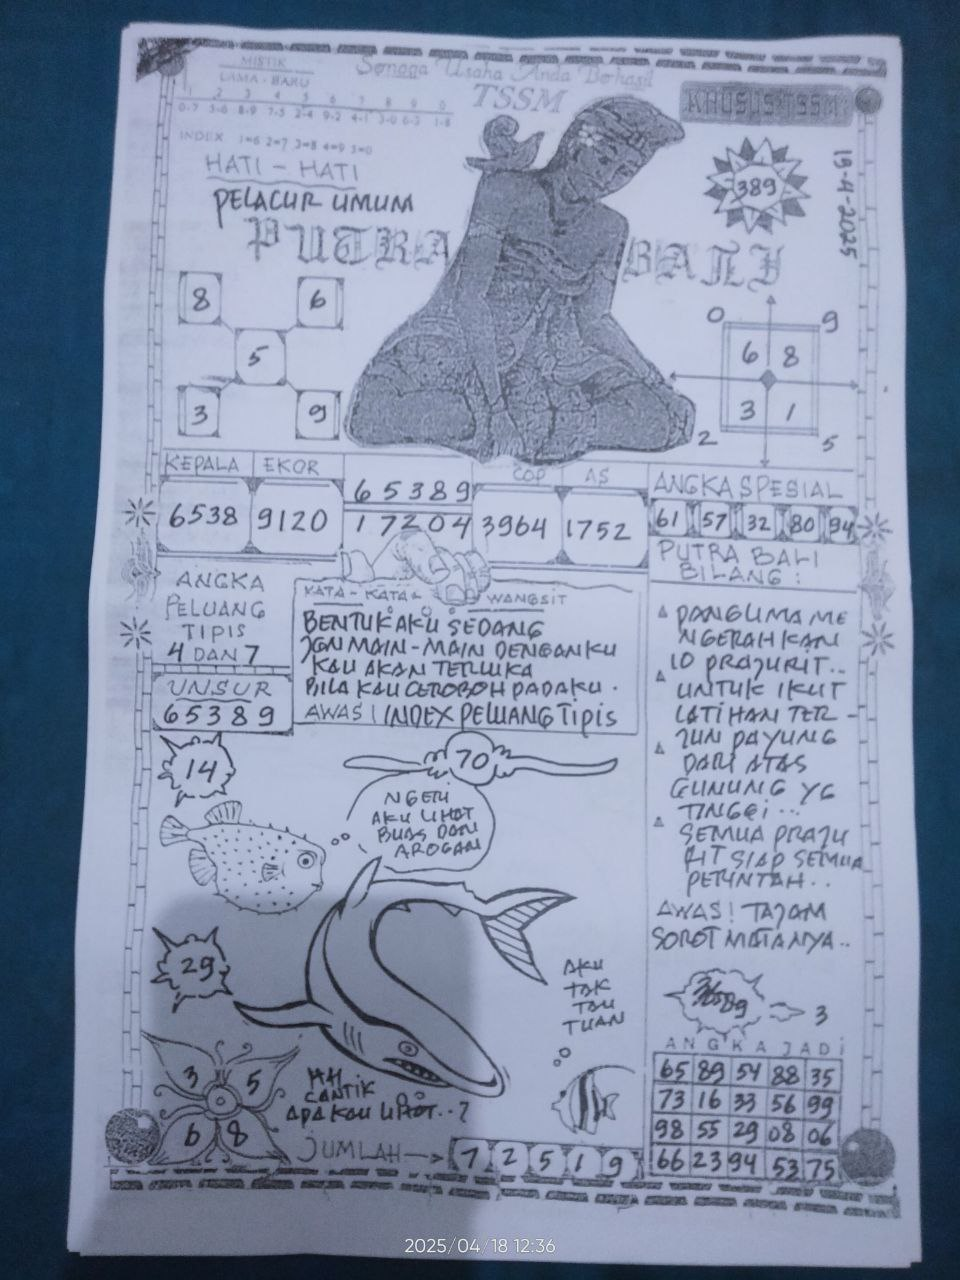 MISTIK
LAMA - BARU
1 2 3 4 5 6 7 8 9 0
0-7 5-6 8-9 7-5 2-4 9-2 4-1 3-0 6-3 1-8
INDEX 1=6 2=7 3=8 4=9 5=0
Semoga Usaha Anda Berhasil
TSSM
KHUSUS TSSM
HATI - HATI
PELACUR UMUM
389
19-4-2025
PUTRA BALI
8 6
5
3 9
0 9
6 8
3 1
2 5
KEPALA EKOR COP AS
6538 9120
65389
17204
3964 1752
ANGKA SPESIAL
61 57 32 80 94
ANGKA
PELUANG
TIPIS
4 DAN 7
UNSUR
65389
KATA - KATA WANGSIT
BENTUK AKU SEDANG
JGN MAIN-MAIN DENGANKU
KAU AKAN TERLUKA
BILA KAU CEROBOH PADAKU.
AWAS! INDEX PELUANG TIPIS
PUTRA BALI
BILANG :
PANGLIMA ME
NGERAHKAN
10 PRAJURIT..
UNTUK IKUT
LATIHAN TER -
JUN PAYUNG
DARI ATAS
GUNUNG YG
TINGGI ...
SEMUA PRAJU
RIT SIAP SEMUA
PERINTAH..
AWAS! TAJAM
SOROT MATANYA..
14
70
NGERI
AKU LIHAT
BUAS DAN
AROGAN
29
AKU
TAK
TAU
TUAN
3
3 5
6 8
HH
CANTIK
APA KAU LIHAT..?
JUMLAH
7 2 5 1 9
ANGKA JADI
65 89 54 88 35
73 16 33 56 99
98 55 29 08 06
66 23 94 53 75
2025/04/18 12:36